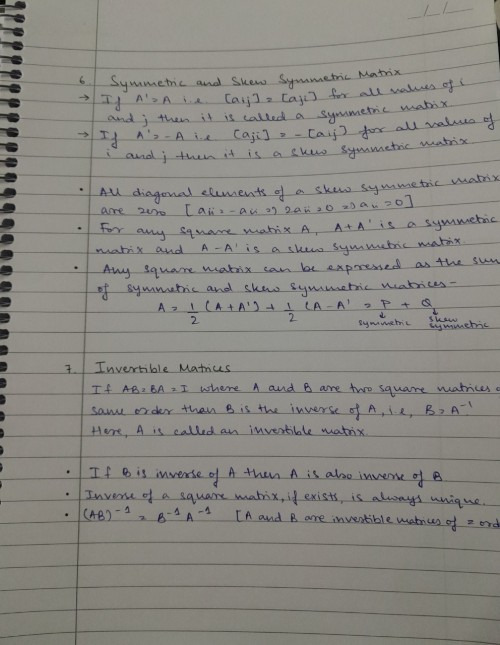 6. Symmetric and Skew Symmetric Matrix
→ If A' = A i.e [aij] = [aji] for all values of i
and j then it is called a symmetric matrix
→ If A' = -A i.e [aji] = -[aij] for all values of
i and j then it is a skew symmetric matrix
• All diagonal elements of a skew symmetric matrix
are zero [aii = -aii => 2aii = 0 => aii = 0]
• For any square matrix A, A+A' is a symmetric
matrix and A-A' is a skew symmetric matrix.
• Any square matrix can be expressed as the sum
of symmetric and skew symmetric matrices -
A = 1/2 (A+A') + 1/2 (A-A' = P + Q
symmetric skew symmetric
7. Invertible Matrices
If AB = BA = I where A and B are two square matrices
same order than B is the inverse of A, i.e, B = A⁻¹
Here, A is called an invertible matrix.
• If B is inverse of A then A is also inverse of B
• Inverse of a square matrix, if exists, is always unique.
• (AB)⁻¹ = B⁻¹ A⁻¹ [A and B are invertible matrices of = ord